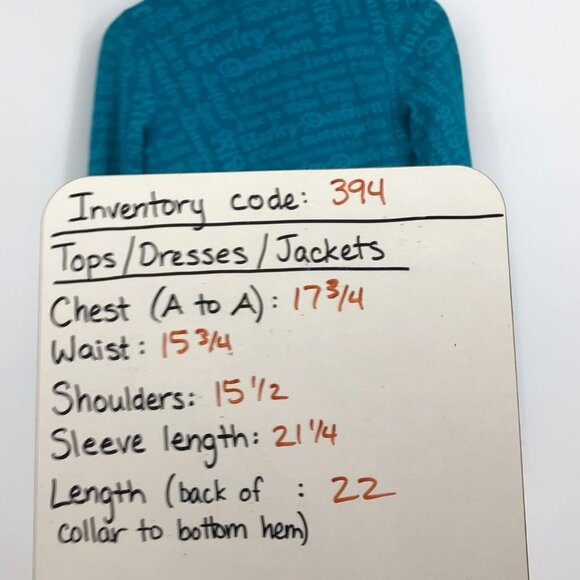 Harley-Davidson
Harley-Davidson
Inventory code: 394
Tops/Dresses/Jackets
Chest (A to A): 17 3/4
Waist: 15 3/4
Shoulders: 15 1/2
Sleeve length: 21 1/4
Length (back of : 22
collar to bottom hem)